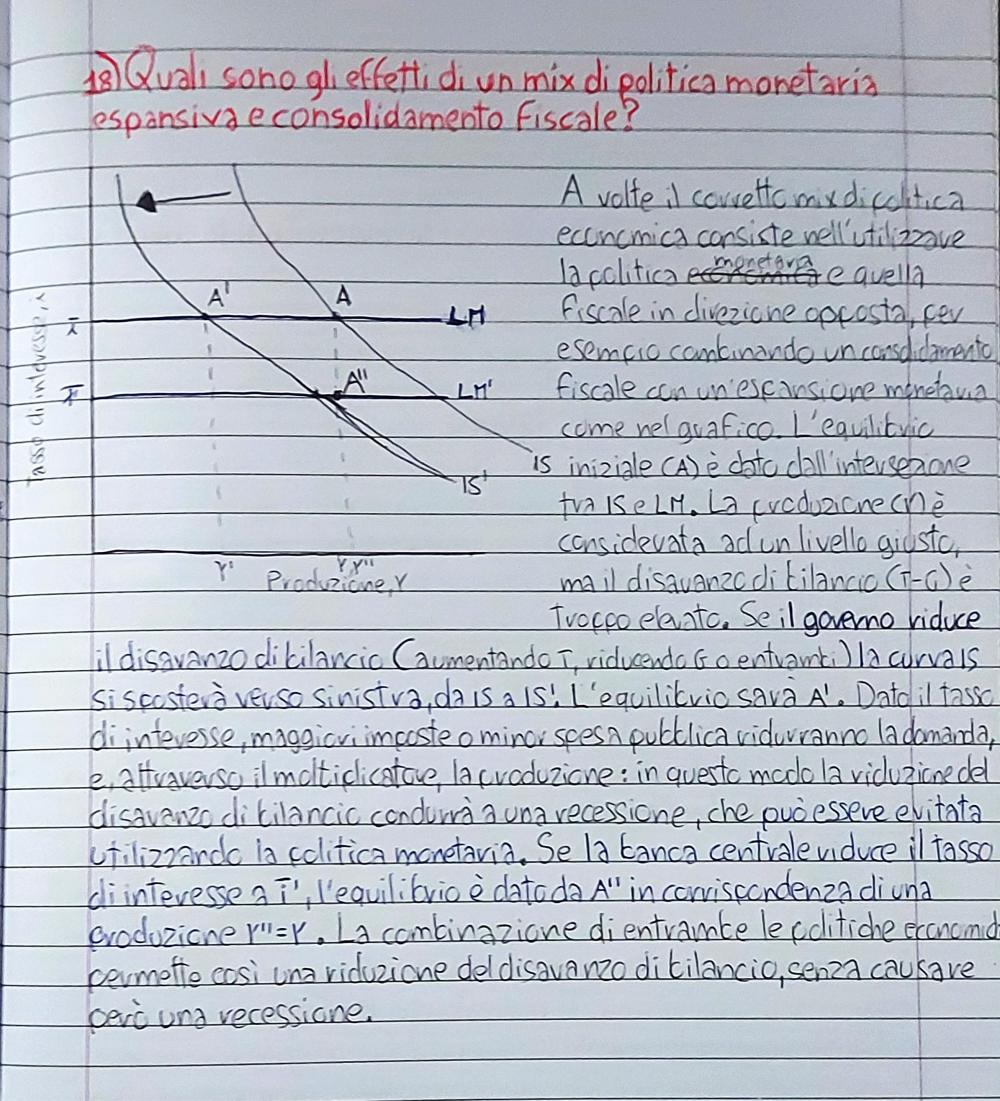 18) Quali sono gli effetti di un mix di politica monetaria
espansiva e consolidamento fiscale?
A volte il corretto mix di politica
economica consiste nell'utilizzare
la politica economica monetaria e quella
fiscale in direzione opposta, per
esempio combinando un consolidamento
fiscale con un'espansione monetaria
come nel grafico. L'equilibrio
iniziale (A) è dato dall'intersezione
tra IS e LM. La produzione (Y) è
considerata ad un livello giusto,
ma il disavanzo di bilancio (T-G) è
troppo elevato. Se il governo riduce
il disavanzo di bilancio (aumentando T, riducendo G o entrambi) la curva IS
si sposterà verso sinistra, da IS a IS'. L'equilibrio sarà A'. Dato il tasso
di interesse, maggiori imposte o minor spesa pubblica ridurranno la domanda,
e, attraverso il moltiplicatore, la produzione: in questo modo la riduzione del
disavanzo di bilancio condurrà a una recessione, che può essere evitata
utilizzando la politica monetaria. Se la banca centrale riduce il tasso
di interesse a i̅', l'equilibrio è dato da A'' in corrispondenza di una
produzione Y''=Y. La combinazione di entrambe le politiche economic
permette così una riduzione del disavanzo di bilancio, senza causare
però una recessione.
Tasso di interesse, i
A'
A
LM
i̅
A''
LM'
i̅'
IS
IS'
Y'
Y,Y''
Produzione, Y